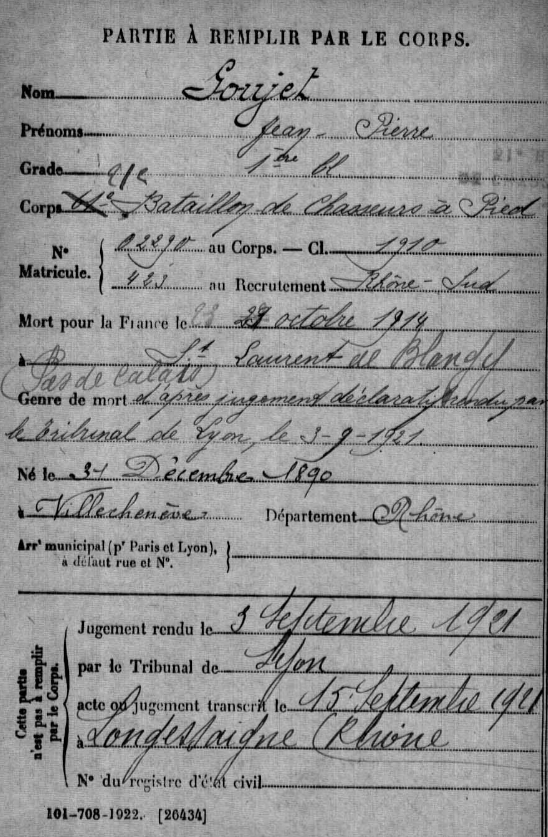 PARTIE À REMPLIR PAR LE CORPS.
Nom Goujet
Prénoms Jean-Pierre
Grade 1ère Cl
Corps Bataillon de Chasseurs à Pied
N° Matricule. 02290 au Corps. — Cl. 1910
423 au Recrutement Rhône-Sud
Mort pour la France le 27 octobre 1914
à St Laurent de Blangy
(Pas de Calais)
Genre de mort d'après jugement déclaratif rendu par
le Tribunal de Lyon, le 3-9-1921
Né le 31 Décembre 1890
à Villechenève Département Rhône
Arrt municipal (pr Paris et Lyon),
à défaut rue et N°.
Cette partie n'est pas à remplir par le Corps.
Jugement rendu le 3 Septembre 1921
par le Tribunal de Lyon
acte ou jugement transcrit le 15 Septembre 1921
à Longessaigne (Rhône
N° du registre d'état civil
101-708-1922. [26434]